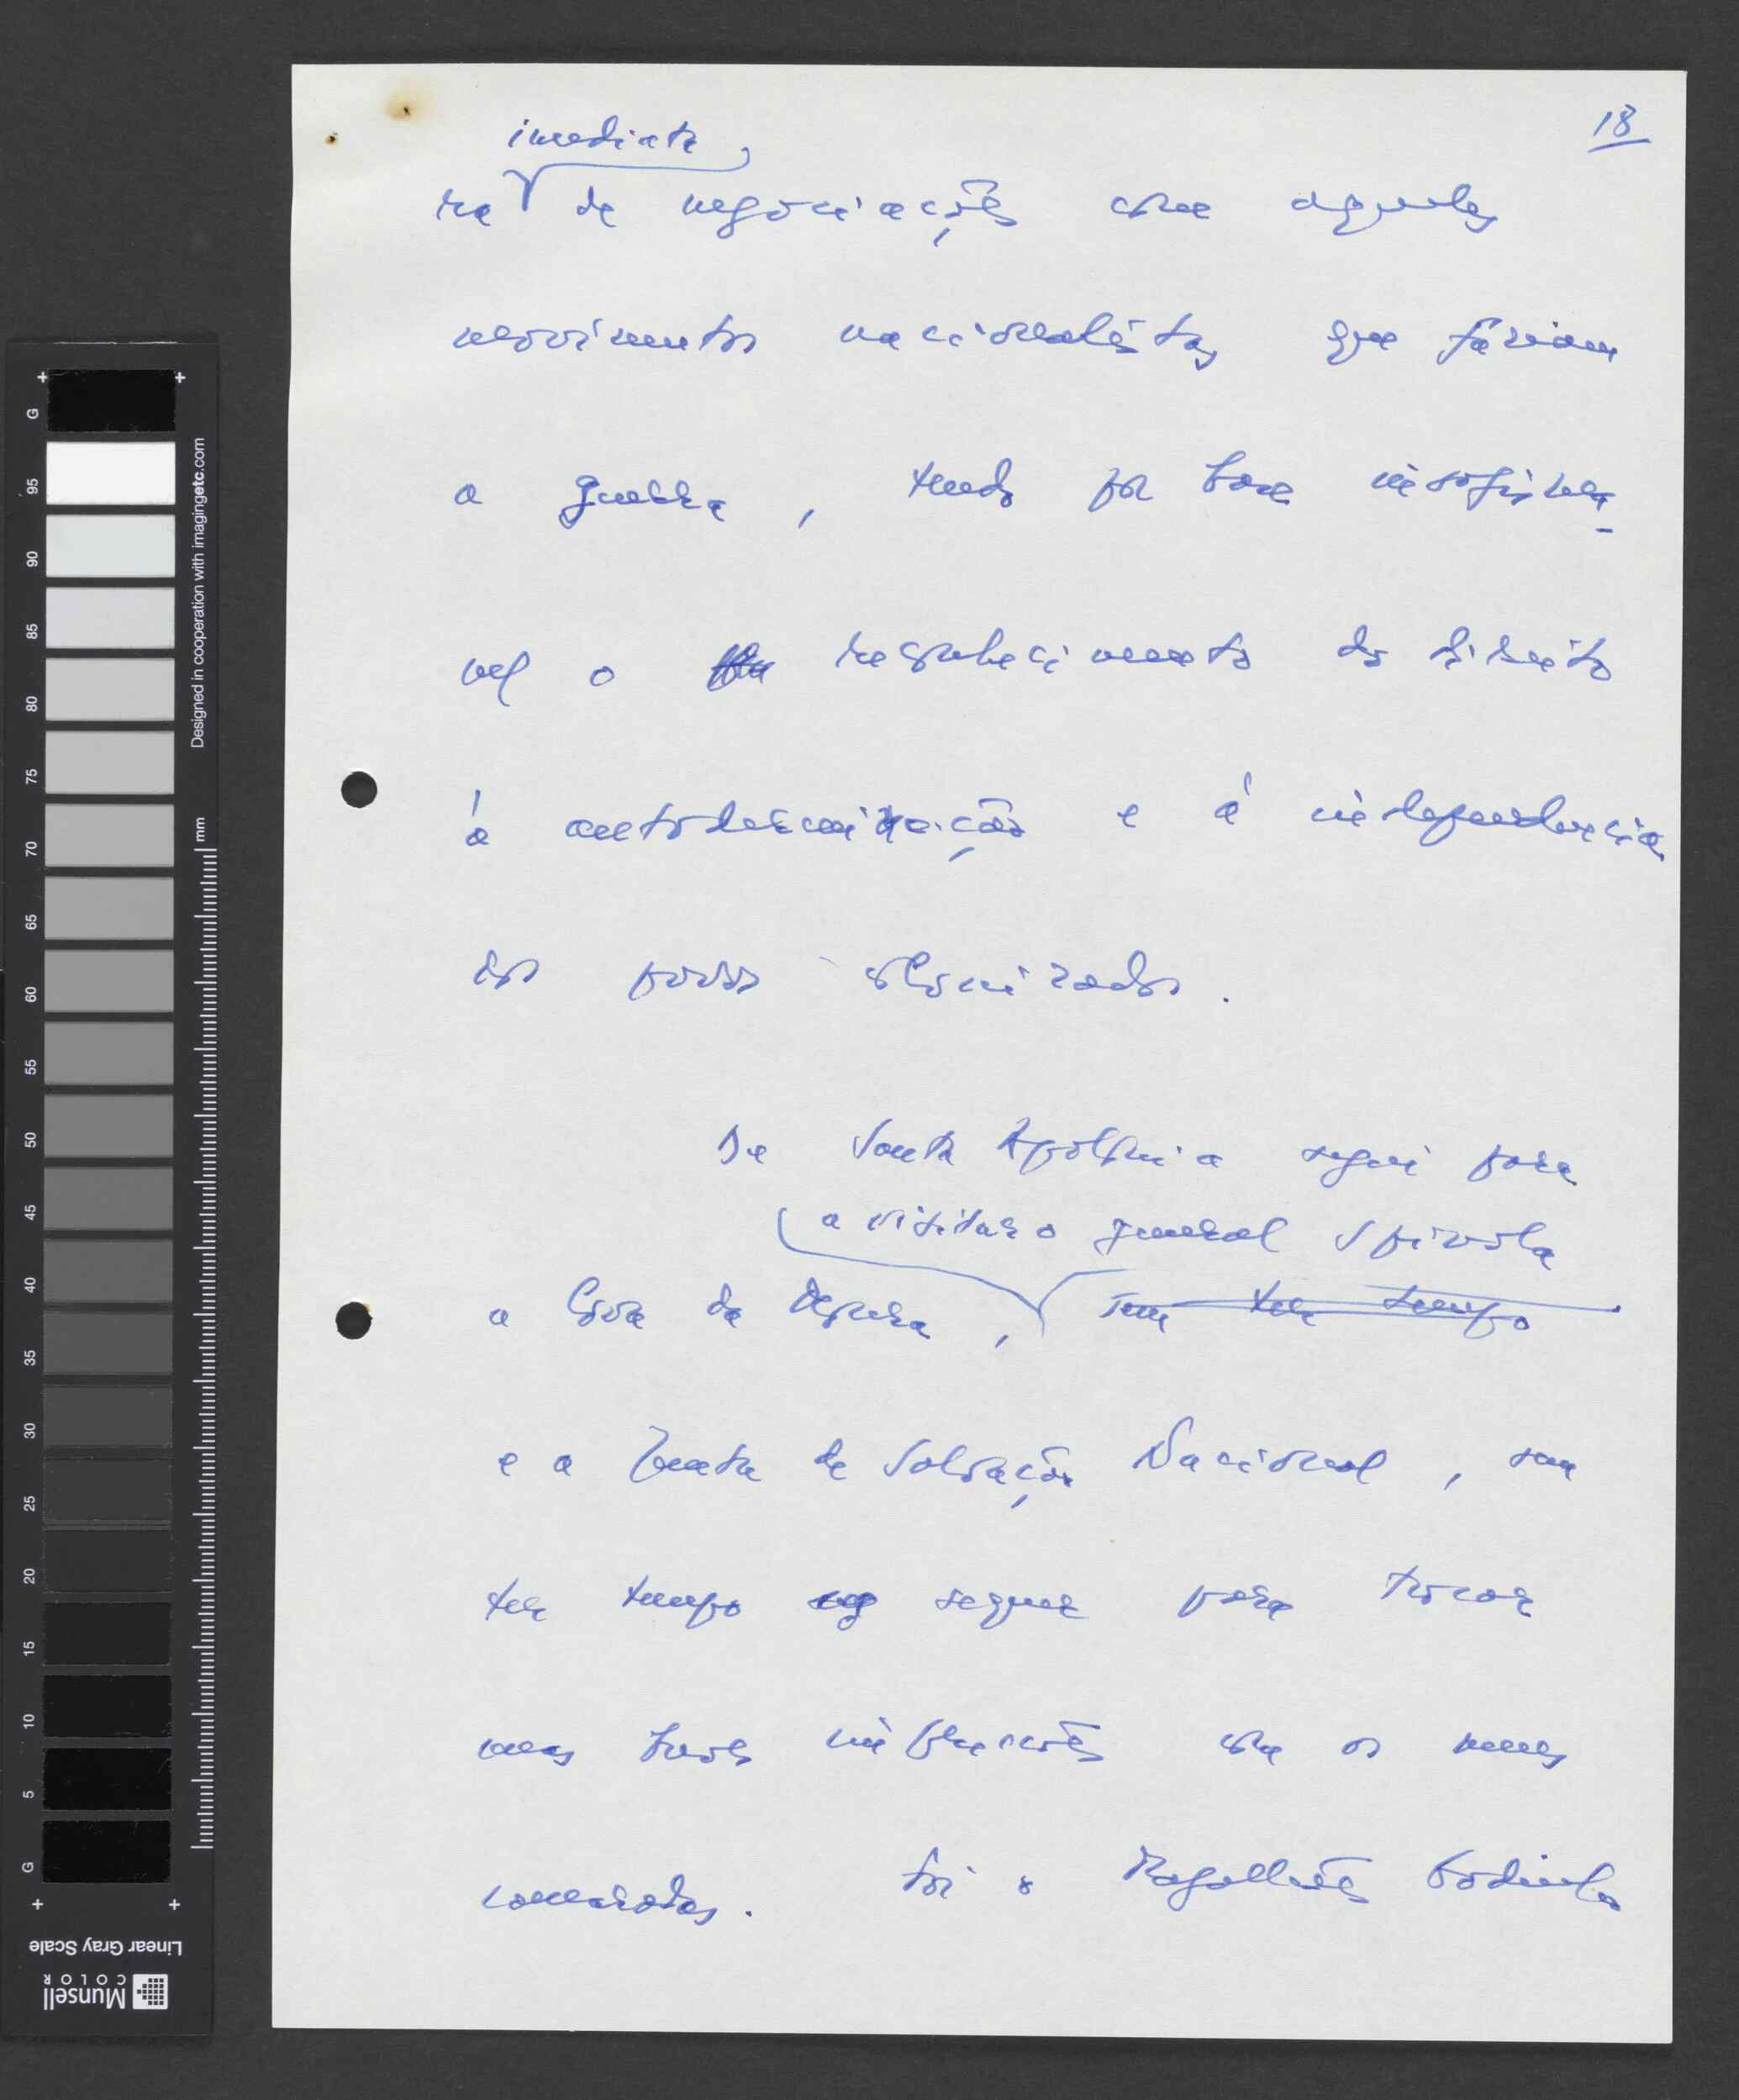 18
imediata
ra de negociações com aqueles
movimentos nacionalistas que faziam
a guerra, tendo por base insofismá-
vel o reconhecimento do direito
à autodeterminação e à independência
dos povos colonizados.
De Santa Apolónia segui para
a visitar o general Spínola
a Cova da Moura, sem ter tempo
e a Junta de Salvação Nacional, sem
ter tempo sequer para trocar
umas breves impressões com os meus
camaradas. Foi o Magalhães Godinho
G
95
90
85
80
75
70
65
60
55
50
45
40
35
30
25
20
15
10
5
G
mm
Designed in cooperation with imagingetc.com
Linear Gray Scale
Munsell
COLOR